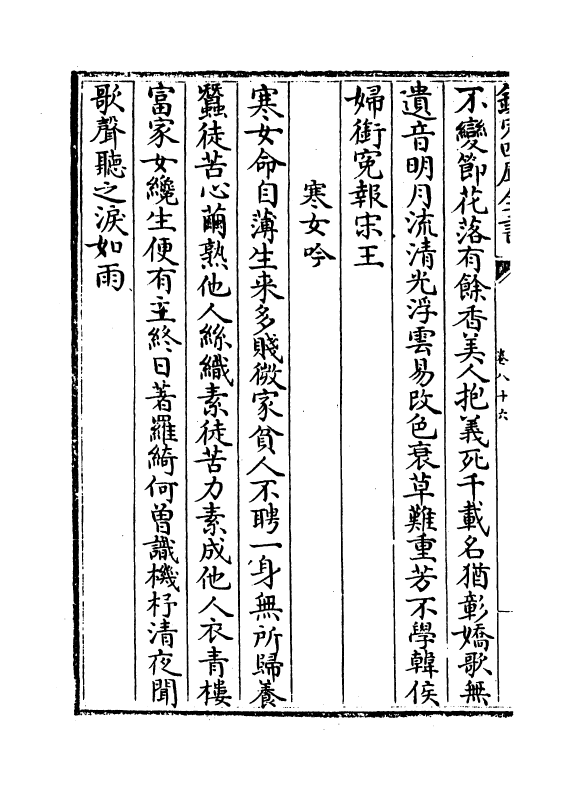 欽定四庫全書
卷八十六
不變節花落有餘香美人抱義死千載名猶彰嬌歌無
遺音明月流清光浮雲易改色衰草難重芳不學韓侯
婦銜寃報宋王
寒女吟
寒女命自薄生来多賤微家貧人不聘一身無所歸養
蠶徒苦心繭熟他人絲織素徒苦力素成他人衣青樓
富家女纔生便有主終日著羅綺何曾識機杼清夜聞
歌聲聽之淚如雨